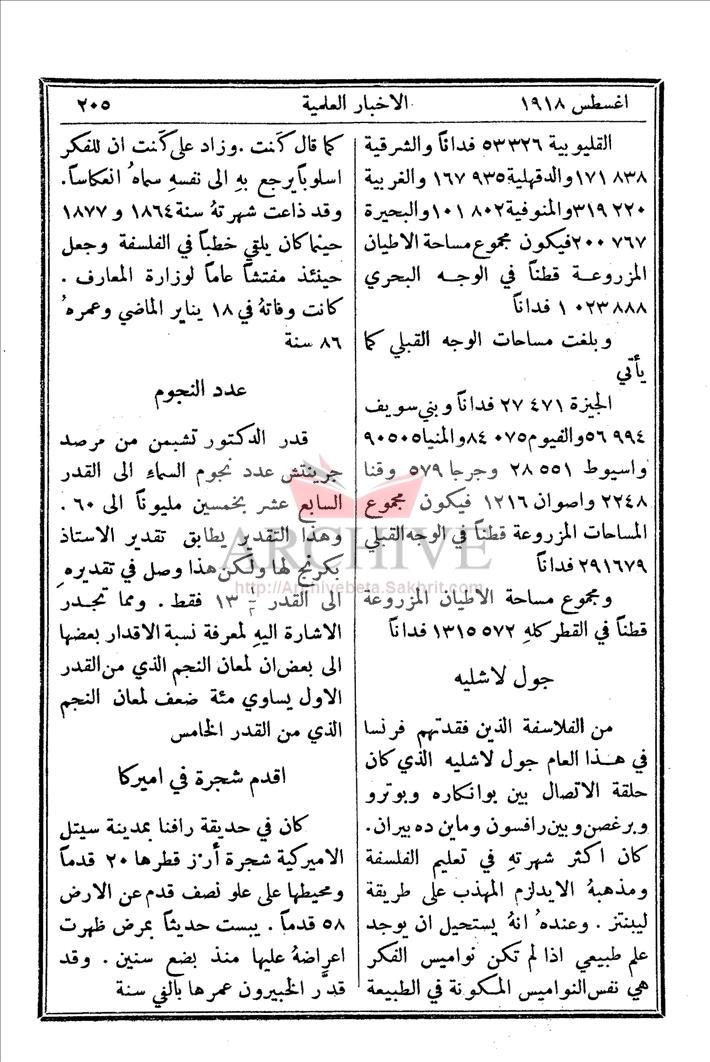 اغسطس ١٩١٨
الاخبار العلمية
٢٠٥
القليوبية ٥٣٣٢٦ فداناً والشرقية
١٧١ ٨٣٨ والدقهلية ٩٣٥ ١٦٧ والغربية
٣١٩ ٢٢٠ والمنوفية ٨٠٢ ١٠١ والبحيرة
٢٠٠ ٧٦٧ فيكون مجموع مساحة الاطيان
المزروعة قطناً في الوجه البحري
١ ٠٢٣ ٨٨٨ فداناً
وبلغت مساحات الوجه القبلي كما
يأتي
الجيزة ٤٧١ ٢٧ فداناً وبني سويف
٥٦ ٩٩٤ والفيوم ٠٧٥ ٨٤ والمنيا ٩٠٥٠٥
واسيوط ٥٥١ ٢٨ وجرجا ٥٧٩ وقنا
٢٢٤٨ واصوان ١٢١٦ فيكون مجموع
المساحات المزروعة قطناً في الوجه القبلي
٢٩١٦٧٩ فداناً
ومجموع مساحة الاطيان المزروعة
قطناً في القطر كله ٥٧٢ ١٣١٥ فداناً
جول لاشليه
من الفلاسفة الذين فقدتهم فرنسا
في هذا العام جول لاشليه الذي كان
حلقة الاتصال بين بوانكاره وبوترو
وبرغصن وبين رافسون وماين ده بيران.
كان اكثر شهرتهِ في تعليم الفلسفة
ومذهبهُ الايدلزم المهذب على طريقة
ليبنتز . وعندهُ انهُ يستحيل ان يوجد
علم طبيعي اذا لم تكن نواميس الفكر
هي نفس النواميس المكونة في الطبيعة
كما قال كَنت . وزاد على كَنت ان للفكر
اسلوباً يرجع بهِ الى نفسهِ سماهُ انعكاساً.
وقد ذاعت شهرتهُ سنة ١٨٦٤ و ١٨٧٧
حينما كان يلقي خطباً في الفلسفة وجعل
حينئذ مفتشاً عاماً لوزارة المعارف .
كانت وفاتهُ في ١٨ يناير الماضي وعمرهُ
٨٦ سنة
عدد النجوم
قدر الدكتور تشبمن من مرصد
جرينتش عدد نجوم السماء الى القدر
السابع عشر بخمسين مليوناً الى ٦٠ .
وهذا التقدير يطابق تقدير الاستاذ
نكرنج لها ولكن هذا وصل في تقديرهِ
الى القدر ١/٢ ١٣ فقط . ومما تجدر
الاشارة اليهِ لمعرفة نسبة الاقدار بعضها
الى بعض ان لمعان النجم الذي من القدر
الاول يساوي مئة ضعف لمعان النجم
الذي من القدر الخامس
اقدم شجرة في اميركا
كان في حديقة رافنا بمدينة سيتل
الاميركية شجرة أَرْز قطرها ٢٠ قدماً
ومحيطها على علو نصف قدم عن الارض
٥٨ قدماً . يبست حديثاً بمرض ظهرت
اعراضهُ عليها منذ بضع سنين . وقد
قدَّر الخبيرون عمرها بالفي سنة
ARCHIVE
http://Archivebeta.Sakhrit.com